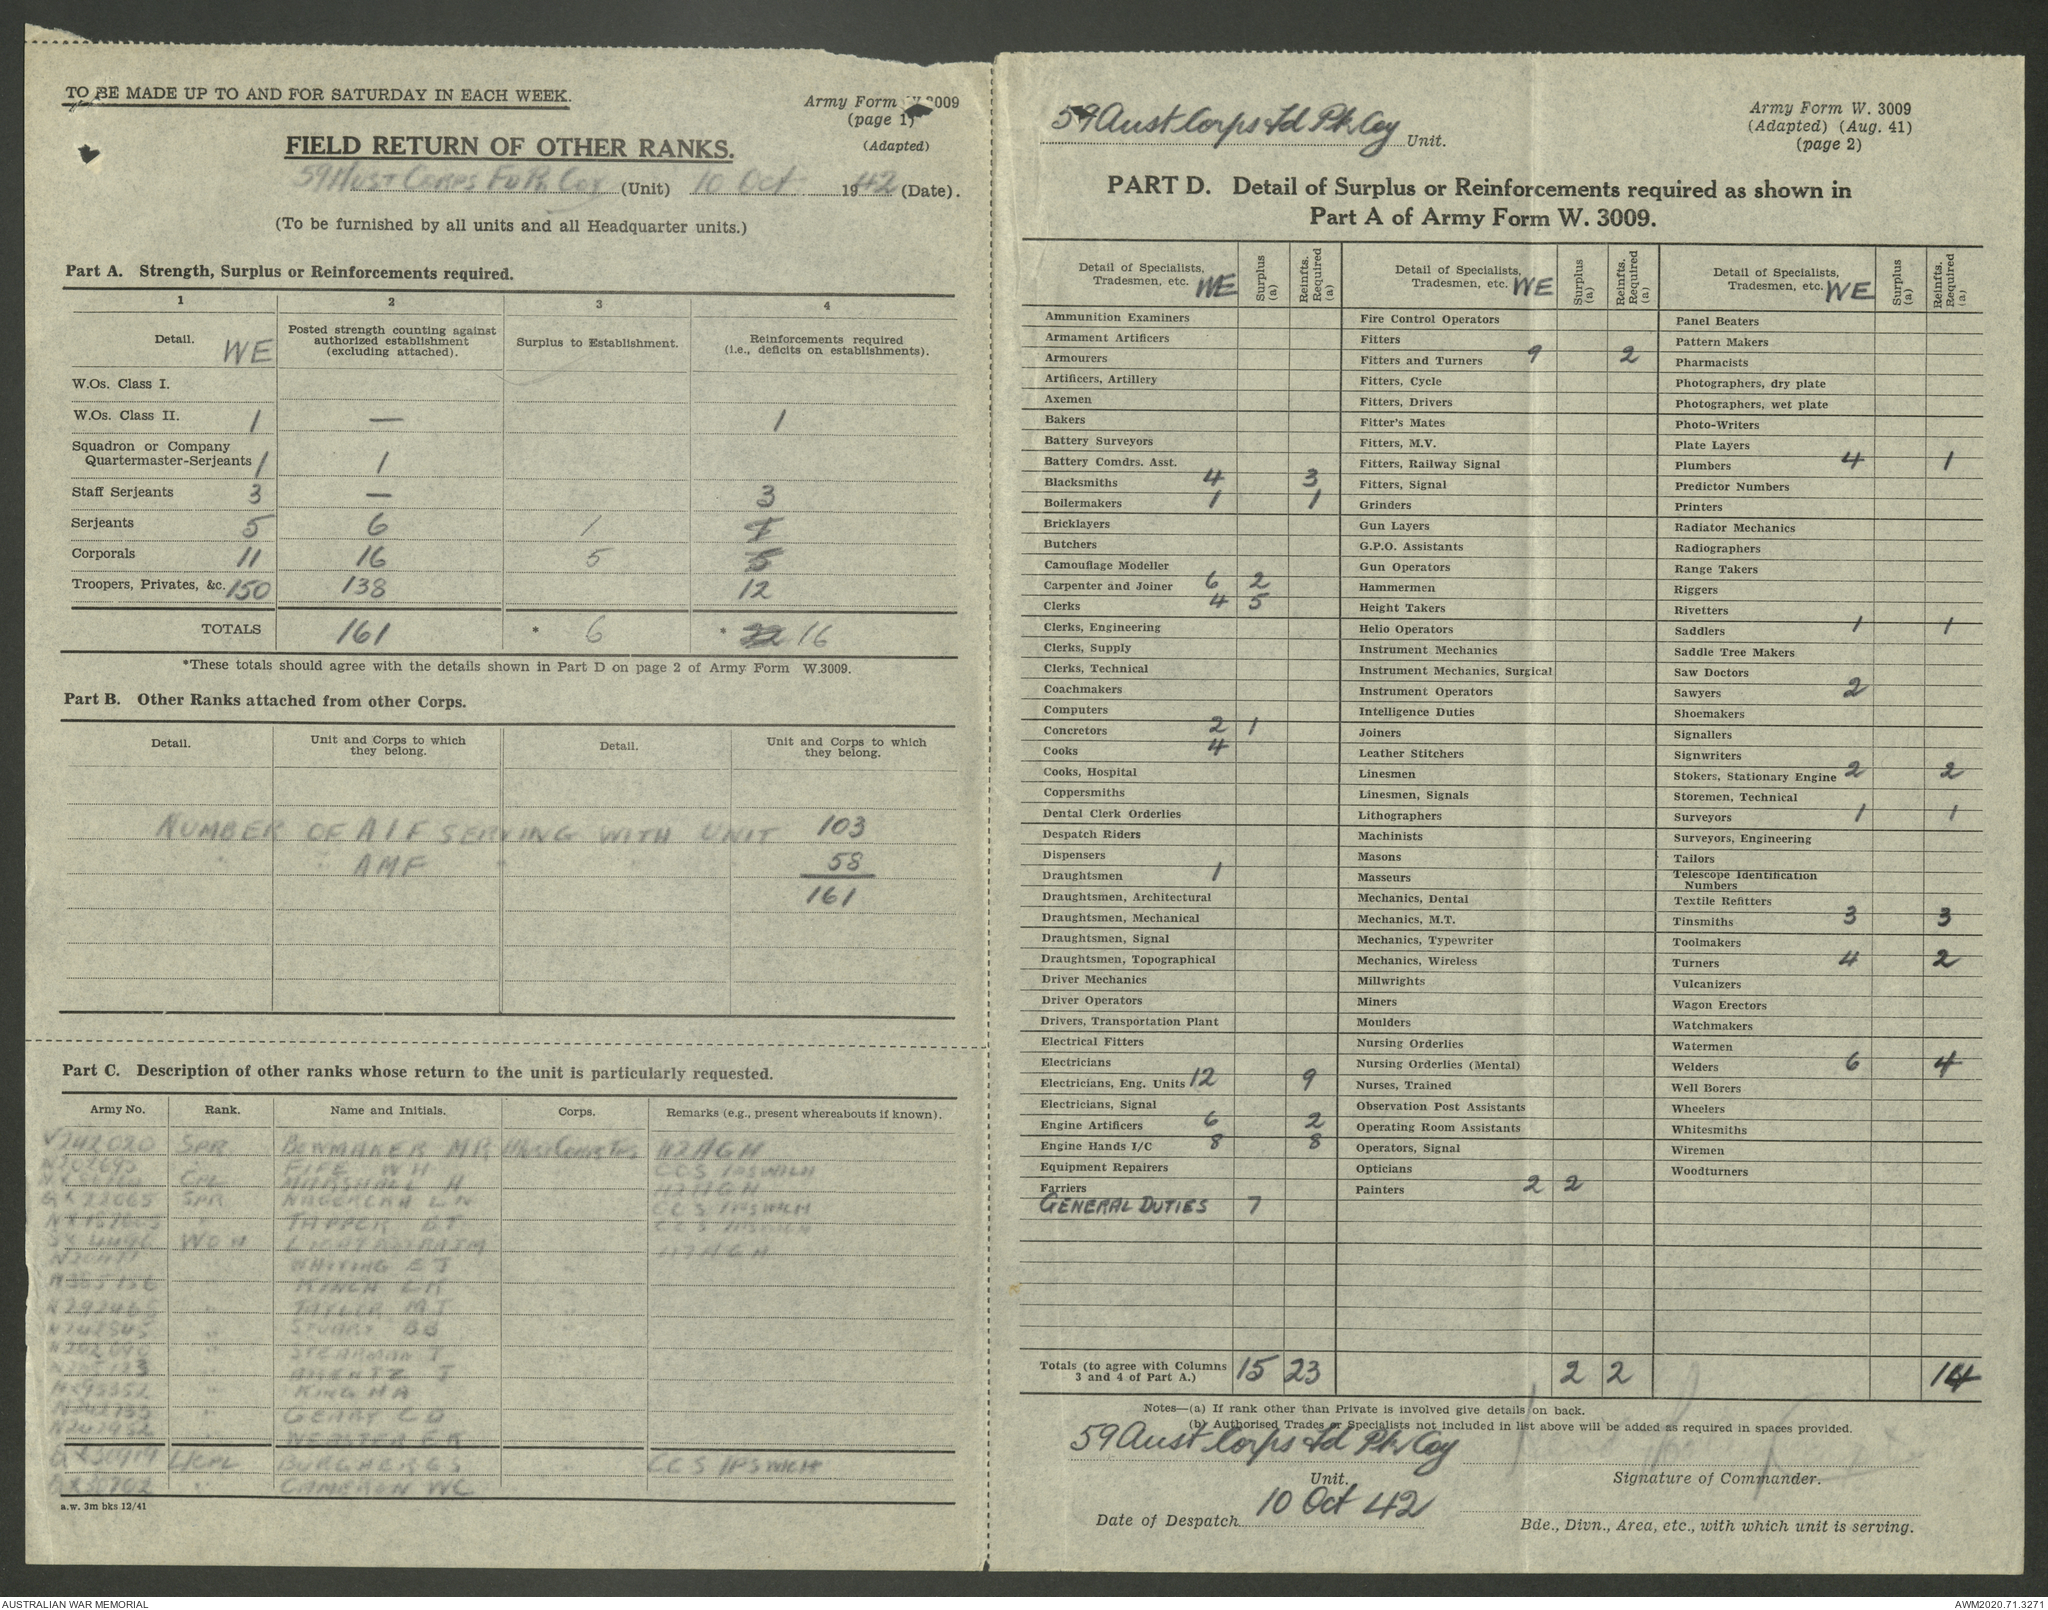 TO BE MADE UP TO AND FOR SATURDAY IN EACH WEEK.
Army Form W.3009
(page 1)
(Adapted)
FIELD RETURN OF OTHER RANKS.
59 Aust Corps Fd Pk Coy (Unit) 10 Oct 1942 (Date).
(To be furnished by all units and all Headquarter units.)
Part A. Strength, Surplus or Reinforcements required.
1 2 3 4
Detail. WE Posted strength counting against authorized establishment (excluding attached). Surplus to Establishment. Reinforcements required (i.e., deficits on establishments).
W.Os. Class I.
W.Os. Class II. 1 — 1
Squadron or Company
Quartermaster-Serjeants 1 1
Staff Serjeants 3 — 3
Serjeants 5 6 1
Corporals 11 16 5 5
Troopers, Privates, &c. 150 138 12
TOTALS 161 * 6 * 22 16
*These totals should agree with the details shown in Part D on page 2 of Army Form W.3009.
Part B. Other Ranks attached from other Corps.
Detail. Unit and Corps to which they belong. Detail. Unit and Corps to which they belong.
NUMBER OF AIF SERVING WITH UNIT 103
" " AMF " " " 58
161
Part C. Description of other ranks whose return to the unit is particularly requested.
Army No. Rank. Name and Initials. Corps. Remarks (e.g., present whereabouts if known).
V242020 SPR BOWMAKER MR 112 AGH
FIFE WH CCS IPSWICH
CPL MARSHALL H 112 AGH
SPR CCS IPSWICH
TAPPER CCS IPSWICH
112 AGH
WHITING EJ
KINCH LK
TAYLOR MJ
STUART BB
STEARMAN
KING HA
GEARY CD
WEBSTER FK
L/CPL CCS IPSWICH
CAMERON WC
a.w. 3m bks 12/41
59 Aust Corps Fd Pk Coy Unit.
Army Form W. 3009
(Adapted) (Aug. 41)
(page 2)
PART D. Detail of Surplus or Reinforcements required as shown in
Part A of Army Form W. 3009.
Detail of Specialists, Tradesmen, etc. WE Surplus (a) Reinfts. Required (a)
Ammunition Examiners
Armament Artificers
Armourers
Artificers, Artillery
Axemen
Bakers
Battery Surveyors
Battery Comdrs. Asst.
Blacksmiths 4 3
Boilermakers 1 1
Bricklayers
Butchers
Camouflage Modeller
Carpenter and Joiner 6 2
Clerks 4 5
Clerks, Engineering
Clerks, Supply
Clerks, Technical
Coachmakers
Computers
Concretors 2 1
Cooks 4
Cooks, Hospital
Coppersmiths
Dental Clerk Orderlies
Despatch Riders
Dispensers
Draughtsmen 1
Draughtsmen, Architectural
Draughtsmen, Mechanical
Draughtsmen, Signal
Draughtsmen, Topographical
Driver Mechanics
Driver Operators
Drivers, Transportation Plant
Electrical Fitters
Electricians
Electricians, Eng. Units 12 9
Electricians, Signal
Engine Artificers 6 2
Engine Hands I/C 8 8
Equipment Repairers
Farriers
GENERAL DUTIES 7
Detail of Specialists, Tradesmen, etc. WE Surplus (a) Reinfts. Required (a)
Fire Control Operators
Fitters
Fitters and Turners 9 2
Fitters, Cycle
Fitters, Drivers
Fitter's Mates
Fitters, M.V.
Fitters, Railway Signal
Fitters, Signal
Grinders
Gun Layers
G.P.O. Assistants
Gun Operators
Hammermen
Height Takers
Helio Operators
Instrument Mechanics
Instrument Mechanics, Surgical
Instrument Operators
Intelligence Duties
Joiners
Leather Stitchers
Linesmen
Linesmen, Signals
Lithographers
Machinists
Masons
Masseurs
Mechanics, Dental
Mechanics, M.T.
Mechanics, Typewriter
Mechanics, Wireless
Millwrights
Miners
Moulders
Nursing Orderlies
Nursing Orderlies (Mental)
Nurses, Trained
Observation Post Assistants
Operating Room Assistants
Operators, Signal
Opticians
Painters 2 2
Detail of Specialists, Tradesmen, etc. WE Surplus (a) Reinfts. Required (a)
Panel Beaters
Pattern Makers
Pharmacists
Photographers, dry plate
Photographers, wet plate
Photo-Writers
Plate Layers
Plumbers 4 1
Predictor Numbers
Printers
Radiator Mechanics
Radiographers
Range Takers
Riggers
Rivetters
Saddlers 1 1
Saddle Tree Makers
Saw Doctors
Sawyers 2
Shoemakers
Signallers
Signwriters
Stokers, Stationary Engine 2 2
Storemen, Technical
Surveyors 1 1
Surveyors, Engineering
Tailors
Telescope Identification
Numbers
Textile Refitters
Tinsmiths 3 3
Toolmakers
Turners 4 2
Vulcanizers
Wagon Erectors
Watchmakers
Watermen
Welders 6 4
Well Borers
Wheelers
Whitesmiths
Wiremen
Woodturners
Totals (to agree with Columns 3 and 4 of Part A.) 15 23 2 2 14
Notes—(a) If rank other than Private is involved give details on back.
(b) Authorised Trades or Specialists not included in list above will be added as required in spaces provided.
59 Aust Corps Fd Pk Coy
Unit. Signature of Commander.
Date of Despatch 10 Oct 42
Bde., Divn., Area, etc., with which unit is serving.
AUSTRALIAN WAR MEMORIAL AWM2020.71.3271